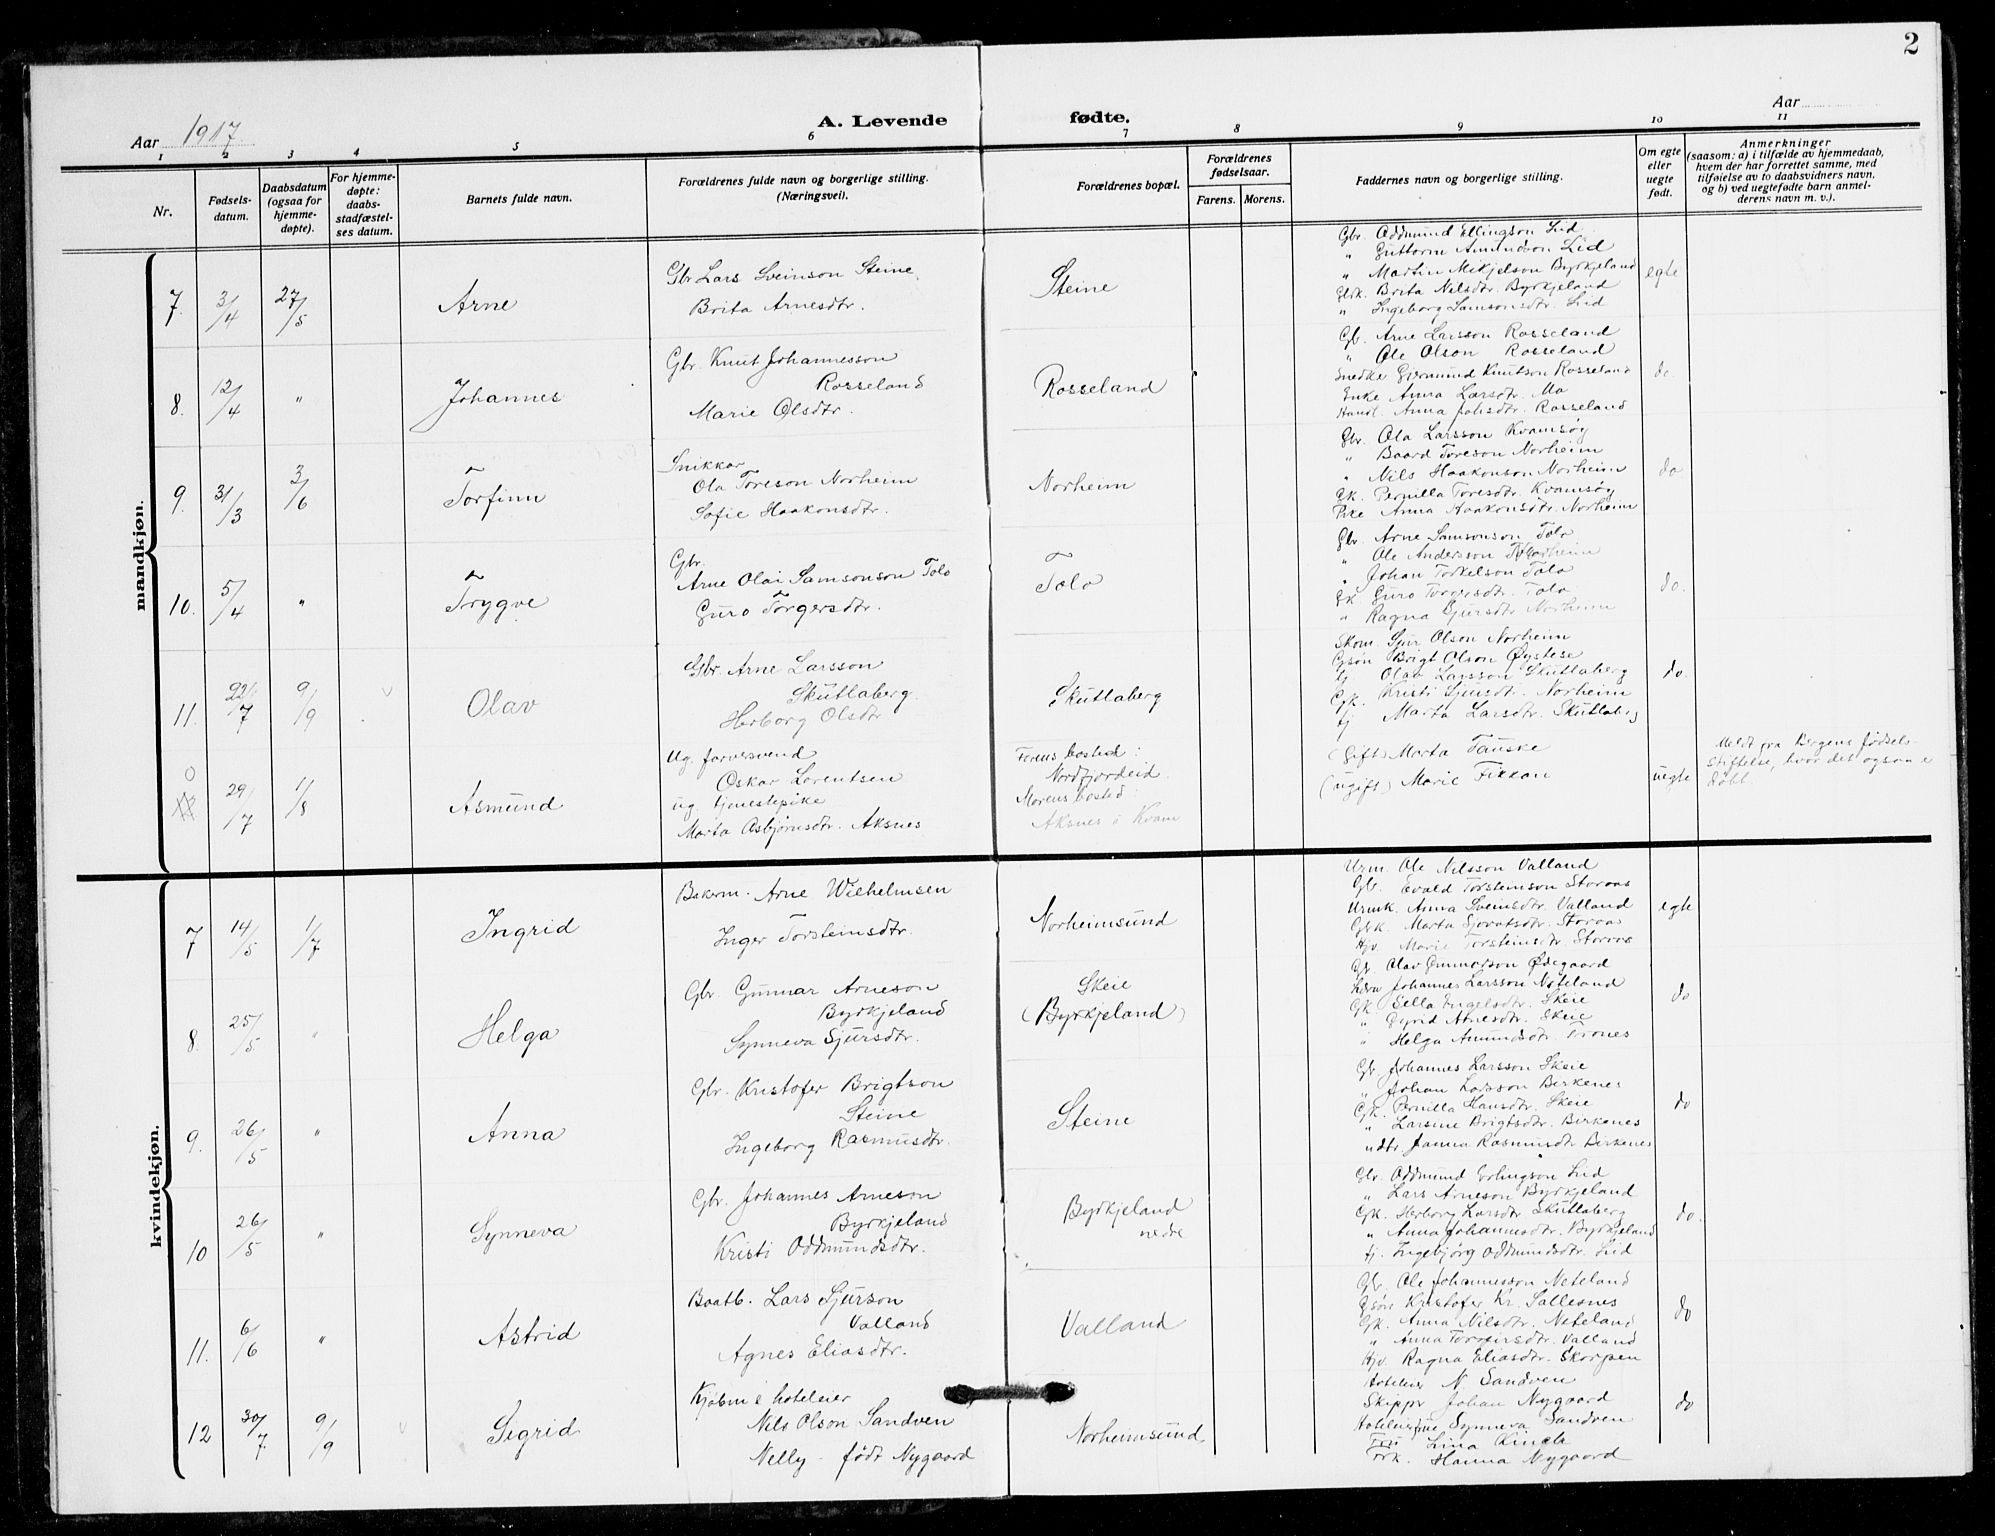 2
A. Levende fødte.
Aar 1917
Aar
1 2 3 4 5 6 7 8 9 10 11
Nr.
Fødsels-
datum.
Daabsdatum
(ogsaa for
hjemme-
døpte).
For hjemme-
døpte:
daabs-
stadfæstel-
ses datum.
Barnets fulde navn.
Forældrenes fulde navn og borgerlige stilling.
(Næringsvei).
Forældrenes bopæl.
Forældrenes
fødselsaar.
Farens. Morens.
Faddernes navn og borgerlige stilling.
Om egte
eller
uegte
født.
Anmerkninger
(saasom: a) i tilfælde av hjemmedaab,
hvem der har forrettet samme, med
tilføielse av to daabsvidners navn,
og b) ved uegtefødte barn anmel-
derens navn m. v.).
mandkjøn.
7. 3/4 27/5 Arne
Gbr Lars Sveinson Steine
Brita Arnesdtr.
Steine
Gbr. Oddmund Ellingson Lid
" Guttorm Amundson Lid
" Martin Mikjelson Byrkjeland
Gbrk. Brita Nilsdtr. Byrkjeland
" Ingeborg Samsonsdtr. Lid
egte
8. 12/4 " Johannes
Gbr. Knut Johannesson
Rosseland
Marie Olsdtr.
Rosseland
Gb. Arne Larsson Rosseland
" Ole Olson Rosseland
Snedke Geirmund Knutson Rosseland
Enke Anna Larsdtr. Mo
Handl. Anna Johsdtr. Rosseland
do.
9. 31/3 3/6 Torfinn
Snikkar
Ola Toreson Norheim
Sofie Haakonsdtr.
Norheim
Gbr. Ola Larsson Kvamsøy
" Baard Toreson Norheim
" Nils Haakonson Norheim
Gk. Pernilla Toresdtr. Kvamsøy
Pike Anna Haakonsdtr. Norheim
do
10. 5/4 " Trygve
Gbr.
Arne Olai Samsonson Tolo
Guro Torgersdtr.
Tolo
Gbr. Arne Samsonson Tolo
" Ole Andersson Norheim
" Johan Torkelson Tolo
Gk. Guro Torgersdtr. Tolo
" Ragna Sjursdtr Norheim
do.
11. 22/7 9/9 Olav
Gbr. Arne Larsson
Skutlaberg.
Herborg Olsdtr
Skutlaberg
Skom. Sjur Olson Norheim
Gsøn Brigt Olson Øystese
Gj Olav Larsson Skutlaberg
Gk. Kristi Sjursdtr. Norheim
tj Marta Larsdtr. Skutlaberg
do
0 29/7 1/8 Asmund
Ug. farversvend
Oskar Lorentsen
ug. tjenestepike
Marta Asbjørnsdtr. Aksnes
Farens bosted:
Nordfjordeid.
Morens bosted:
Aksnes i Kvam
(Gift) Marta Tauske
(ugift) Marie Fikkan
uegte
Meldt fra Bergens fødsels-
stiftelse, hvor det ogsaa e
døbt
kvindekjøn.
7 14/5 1/7 Ingrid
Bakerm. Arne Wilhelmsen
Inger Torsteinsdtr.
Norheimsund
Urm. Ole Nilsson Valland
Gbr. Evald Torsteinson Storaas
Urmk. Anna Sveinsdtr. Valland
Gbk. Marta Sjovatsdtr. Storaas
Hjv. Marie Torsteinsdtr. Storaas
egte
8. 25/5 " Helga
Gbr. Gunnar Arneson
Byrkjeland
Synneva Sjursdtr.
Skeie
(Byrkjeland)
Gb. Olav Gunnarson Ødegaard
Johannes Larsson Neteland
Gk Sella Engelsdtr. Skeie
" Dyrid Arnesdtr. Skeie
" Helga Amundsdtr. Trones
do
9. 26/5 " Anna
Gbr. Kristofer Brigtson
Steine
Ingeborg Rasmusdtr.
Steine
Gb Johannes Larsson Skeie
" Johan Larsson Birkenes
Gk. Pernilla Hansdtr. Skeie
" Larsine Brigtsdtr. Birkenes
Janna Rasmusdtr Birkenes
do
10 26/5 " Synneva
Gbr. Johannes Arneson
Byrkjeland
Kristi Oddmundsdtr.
Byrkjeland
nedre
Gbr. Oddmund Erlingson Lid
" Lars Arneson Byrkjeland
Gk. Herborg Larsdtr Skutlaberg
" Anna Johannesdtr. Byrkjeland
tj. Ingebjørg Oddmundsdtr. Lid
do.
11. 6/6 " Astrid
Baatb. Lars Sjurson
Valland
Agnes Eliasdtr.
Valland
Gb. Ole Johannesson Neteland
Gsøn Kristofer Kr. Sallesnes
Gk. Anna Nilsdtr. Neteland
" Anna Torgeirsdtr. Valland
Hjv. Ragna Eliasdtr. Skorpen
do
12 30/7 9/9 Sigrid
Kjøbm & hoteleier
Nils Olson Sandven
Nelly - født Nygaard
Norheimsund
Hoteleier N Sandven
Skippr Johan Nygaard
Synneva Sandven
Fru Lina Kinck
Frk. Hanna Nygaard
do